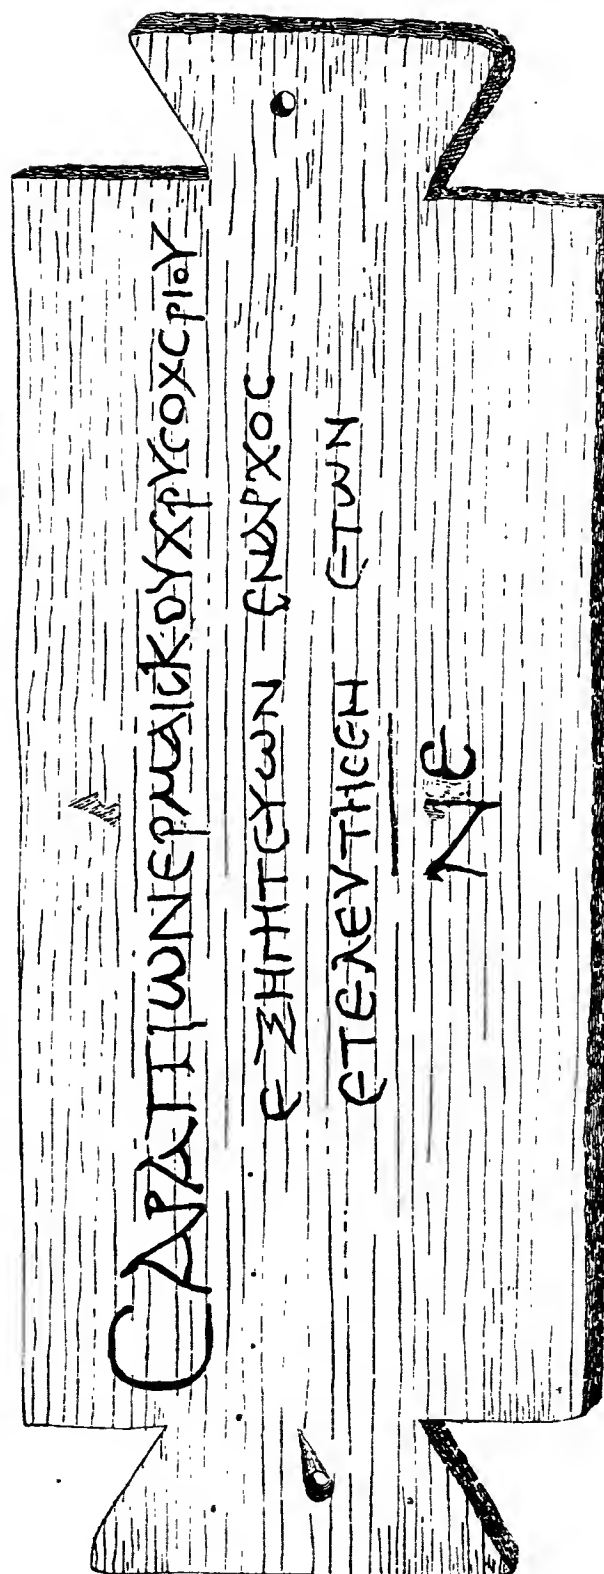 ϹΑΡΑΠΙωΝΕΡΜΑΙϹΚΟΥΧΡΥϹΟΧϹΡΙΟΥ
ΕΞΗΓΗΤΕΥωΝ ΕΝΑΡΧΟϹ
ΕΤΕΛΕΥΤΗϹΕΗ ΕΤωΝ
ΝΕ